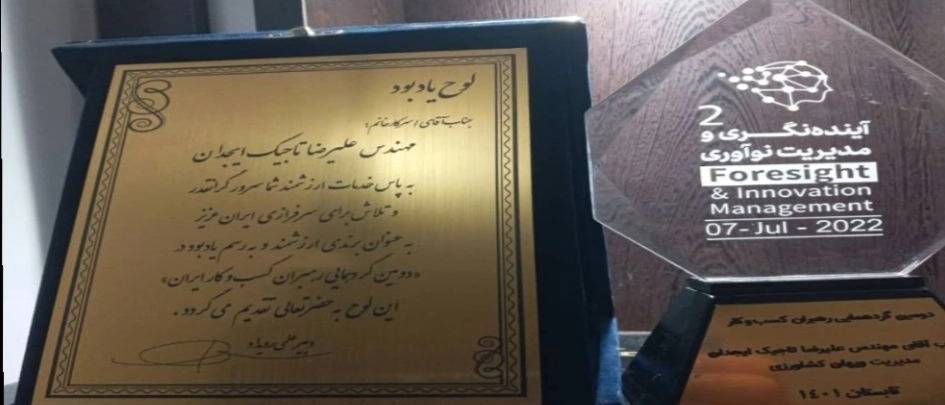 لوح یادبود
جناب آقای / سرکار خانم:
مهندس علیرضا تاجیک ایجدان
به پاس خدمات ارزشمند شما سرور گرانقدر
و تلاش برای سرفرازی ایران عزیز
به عنوان برندی ارزشمند و به رسم یادبود در
«دومین گردهمایی رهبران کسب و کار ایران»
این لوح به حضرتعالی تقدیم می گردد.
دبیر علمی رویداد
2
آینده‌نگری و
مدیریت نوآوری
Foresight
& Innovation
Management
07- Jul - 2022
دومین گردهمایی رهبران کسب‌وکار
آقای مهندس علیرضا تاجیک ایجدان
مدیریت ویهان کشاورزی
تابستان ۱۴۰۱